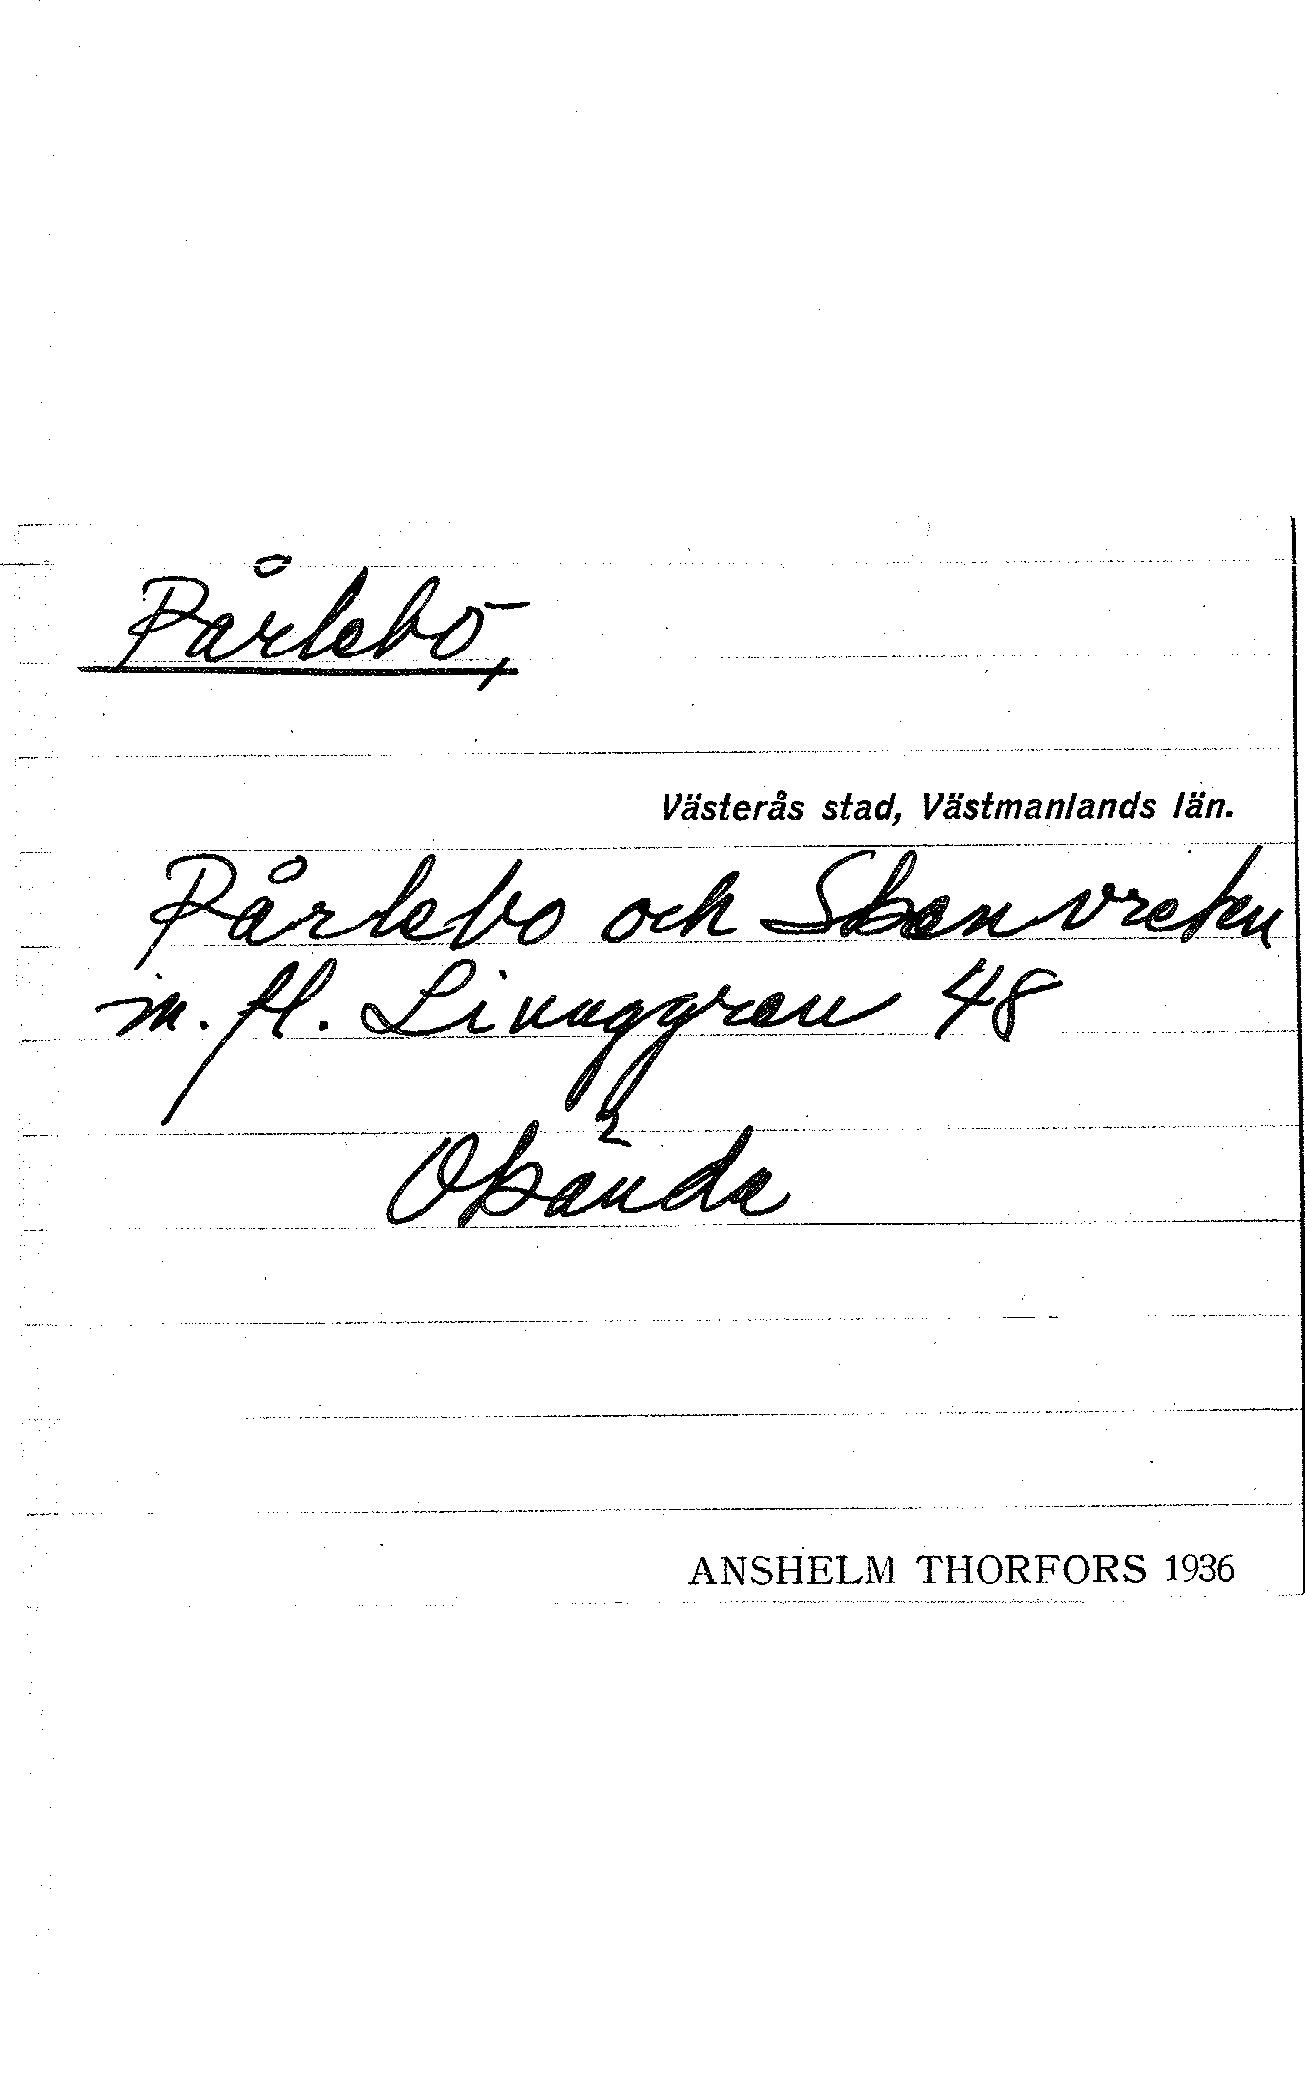 Pårlebo,
Västerås stad, Västmanlands län.
Pårlebo och Skanvreten
m. fl. Linnggren 48
Okända
ANSHELM THORFORS 1936